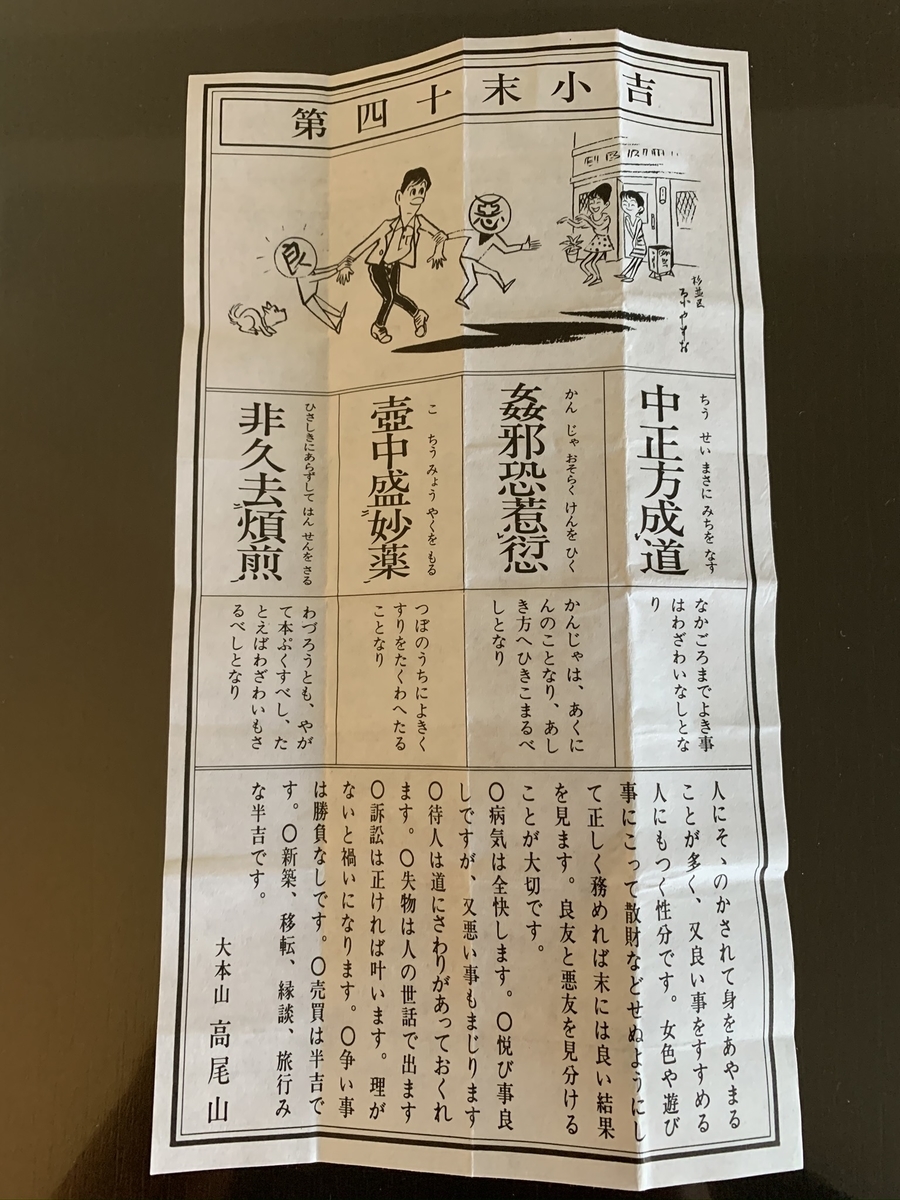 第四十末小吉
良
悪
杉並区
中正方成道
ちう せい まさに みちを なす
姦邪恐惹愆
かん じゃ おそらく けんを ひく
壺中盛妙薬
こ ちう みょう やくを もる
非久去煩煎
ひさしきにあらずして はん せんを さる
なかごろまでよき事
はわざわいなしとな
り
かんじゃは、あくに
んのことなり、あし
き方へひきこまるべ
しとなり
つぼのうちによきく
すりをたくわへたる
ことなり
わづろうとも、やが
て本ぷくすべし、た
とえばわざわいもさ
るべしとなり
人にそゝのかされて身をあやまる
ことが多く、又良い事をすすめる
人にもつく性分です。女色や遊び
事にこって散財などせぬようにし
て正しく務めれば末には良い結果
を見ます。良友と悪友を見分ける
ことが大切です。
〇病気は全快します。〇悦び事良
しですが、又悪い事もまじります
〇待人は道にさわりがあっておくれ
ます。〇失物は人の世話で出ます
〇訴訟は正ければ叶います。理が
ないと禍いになります。〇争い事
は勝負なしです。〇売買は半吉で
す。〇新築、移転、縁談、旅行み
な半吉です。
大本山 高尾山